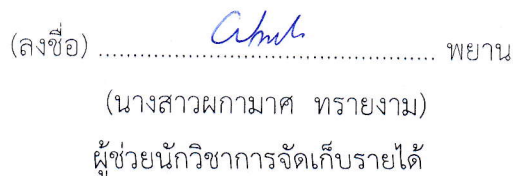 (ลงชื่อ) ................................................ พยาน
(นางสาวผกามาศ ทรายงาม)
ผู้ช่วยนักวิชาการจัดเก็บรายได้